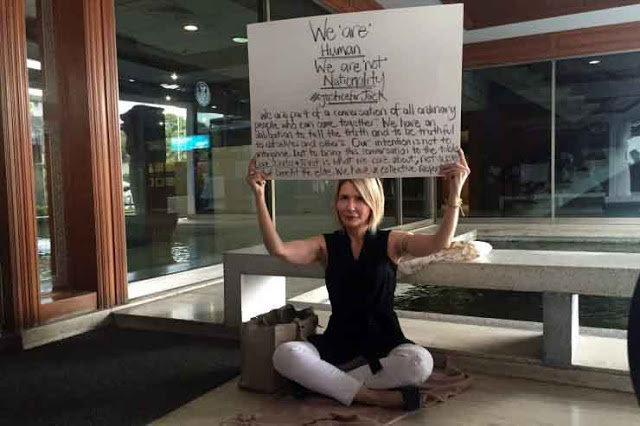 We are
Human
We are not
Nationality
#justiceforJack
We are part of a conversation of all ordinary
people who can come together. We have an
obligation to tell the truth and to be truthful
to ourselves and others. Our intention is not to
but to bring this conversation to the table
is what we care about, not
benefit the elite. We have a collective